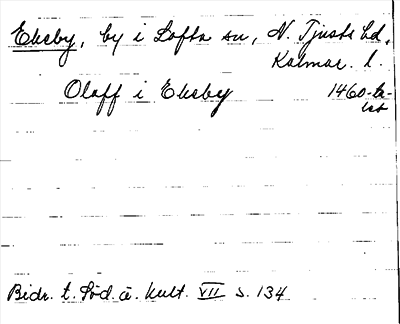 Eksby, by i Lofta sn, N. Tjusts hd,
Kalmar. l.
Olaff i Eksby 1460-ta-
let
Bidr. t. Söd. ä. kult. VII s. 134